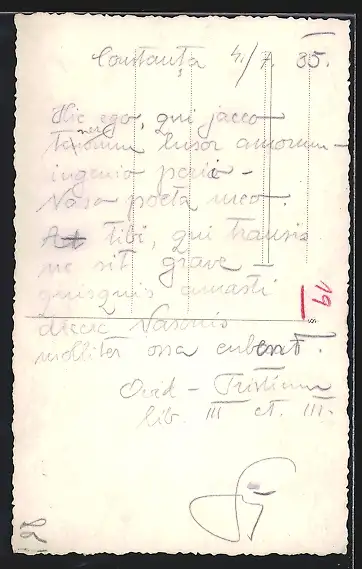 Constanța 4./7. 35.
Hic ego, qui jaceo
tenerorum lusor amorum –
ingenio perii –
Naso poeta meo.
At tibi, qui transis
ne sit grave –
quisquis amasti
dicere Nasonis
molliter ossa cubent.
Ovid – Tristium
lib. III et. III.
19